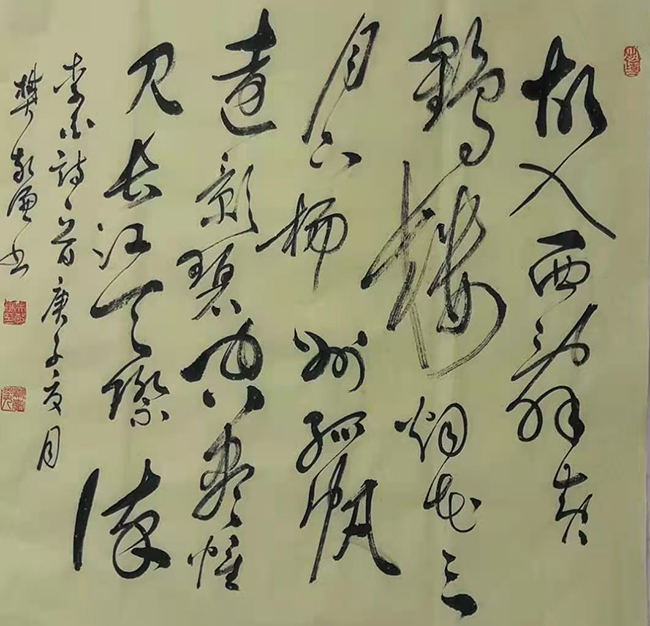 故人西辞黄
鹤楼烟花三
月下扬州孤帆
远影碧空尽惟
见长江天际流
李白诗一首庚子夏月
樊书